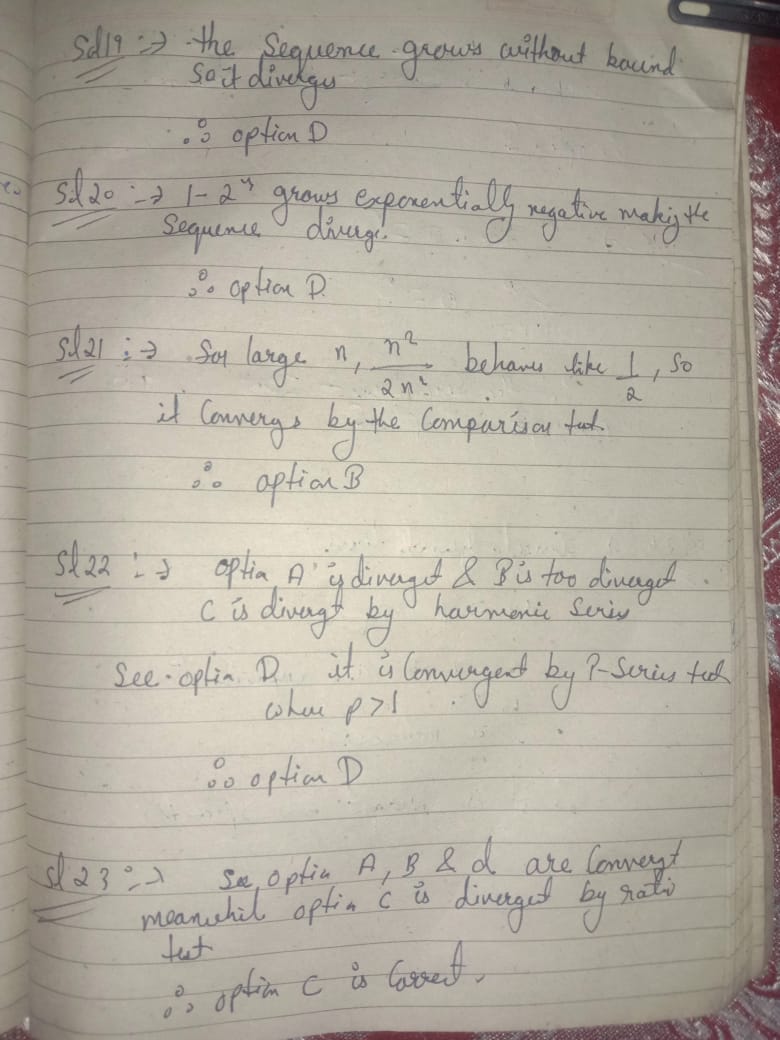 Sol 19 :→ the Sequence grows without bound
So it diverges
∴ option D
Sol 20 :→ 1 - 2ⁿ grows exponentially negative making the
Sequence diverge.
∴ option D.
Sol 21 :→ For large n, n²/2n² behaves like 1/2, so
it Converges by the Comparison test.
∴ option B
Sol 22 :→ option A is diverget & B is too diverget.
C is divergt by harmonic Series
See option D it is Convergent by P-Series test
where p>1
∴ option D
Sol 23 :→ See option A, B & d are Convergt
meanwhil option C is diverget by ratio
test
∴ option C is Correct.